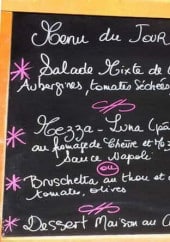 Menu du JOUR
Salade Mixte de
Aubergines, tomates séchées
Mezza-Luna
au fromage de Chèvre et
Sauce Napoli
ou
Bruschetta au thon et
tomate, olives
Dessert Maison au